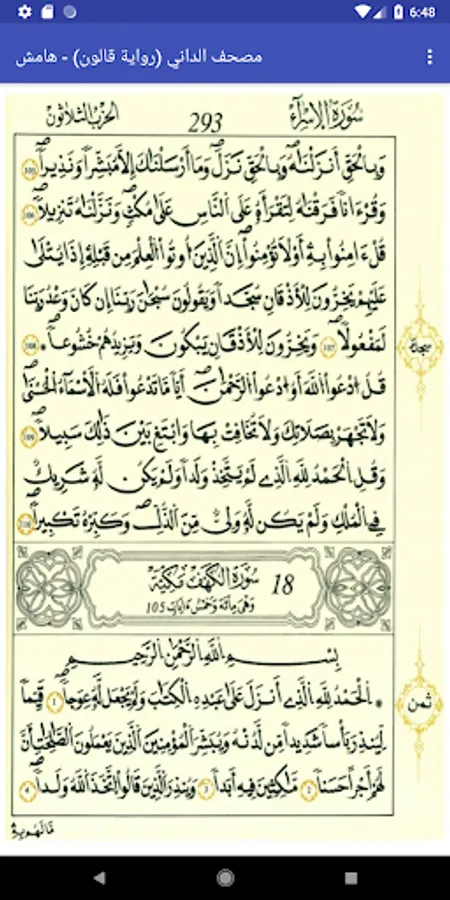 6:48
مصحف الداني (رواية قالون) - هامش
سُورَةُ الإِسْرَاءِ 293 الحزب الثلاثون
وَبِالْحَقِّ أَنزَلْنَٰهُ وَبِالْحَقِّ نَزَلَ وَمَا أَرْسَلْنَٰكَ إِلَّا مُبَشِّراً وَنَذِيراً 105
وَقُرْءَاناً فَرَقْنَٰهُ لِتَقْرَأَهُ عَلَى النَّاسِ عَلَىٰ مُكْثٍ وَنَزَّلْنَٰهُ تَنزِيلاً 106
قُلْ ءَامِنُوا بِهِ أَوْ لَا تُؤْمِنُوا إِنَّ الَّذِينَ أُوتُوا الْعِلْمَ مِن قَبْلِهِ إِذَا يُتْلَىٰ
عَلَيْهِمْ يَخِرُّونَ لِلْأَذْقَانِ سُجَّداً وَيَقُولُونَ سُبْحَٰنَ رَبِّنَا إِن كَانَ وَعْدُ رَبِّنَا
لَمَفْعُولاً 107 وَيَخِرُّونَ لِلْأَذْقَانِ يَبْكُونَ وَيَزِيدُهُمْ خُشُوعاً 108
سجدة
قُلُ ادْعُوا اللَّهَ أَوُ ادْعُوا الرَّحْمَٰنَ أَيّاً مَّا تَدْعُوا فَلَهُ الْأَسْمَاءُ الْحُسْنَىٰ
وَلَا تَجْهَرْ بِصَلَاتِكَ وَلَا تُخَافِتْ بِهَا وَابْتَغِ بَيْنَ ذَٰلِكَ سَبِيلاً 109
وَقُلِ الْحَمْدُ لِلَّهِ الَّذِي لَمْ يَتَّخِذْ وَلَداً وَلَمْ يَكُن لَّهُ شَرِيكٌ
فِي الْمُلْكِ وَلَمْ يَكُن لَّهُ وَلِيٌّ مِّنَ الذُّلِّ وَكَبِّرْهُ تَكْبِيراً 110
18 سُورَةُ الْكَهْفِ مَكِّيَّة
وَهْيَ مِائَة وَخَمْسُ ءَايَات 105
بِسْمِ اللَّهِ الرَّحْمَٰنِ الرَّحِيمِ
* الْحَمْدُ لِلَّهِ الَّذِي أَنزَلَ عَلَىٰ عَبْدِهِ الْكِتَٰبَ وَلَمْ يَجْعَل لَّهُ عِوَجاً 1 قَيِّماً
ثمن
لِّيُنذِرَ بَأْساً شَدِيداً مِّن لَّدُنْهُ وَيُبَشِّرَ الْمُؤْمِنِينَ الَّذِينَ يَعْمَلُونَ الصَّٰلِحَٰتِ أَنَّ
لَهُمْ أَجْراً حَسَناً 2 مَّٰكِثِينَ فِيهِ أَبَداً 3 وَيُنذِرَ الَّذِينَ قَالُوا اتَّخَذَ اللَّهُ وَلَداً 4
مَّا لَهُم بِهِ